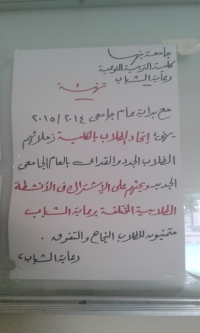 جامعة بنها
كلية التربية النوعية
رعاية الشباب
تهنئة
مع بداية عام جامعى ٢٠١٤ / ٢٠١٥
يهنئ إتحاد طلاب بالكلية زملائهم
الطلاب الجدد والقدامى بالعام الجامعى
الجديد ويحثهم على الإشتراك فى الأنشطة
الطلابية المختلفة برعاية الشباب
متمنيين للطلاب النجاح والتفوق .
رعاية الشباب ،